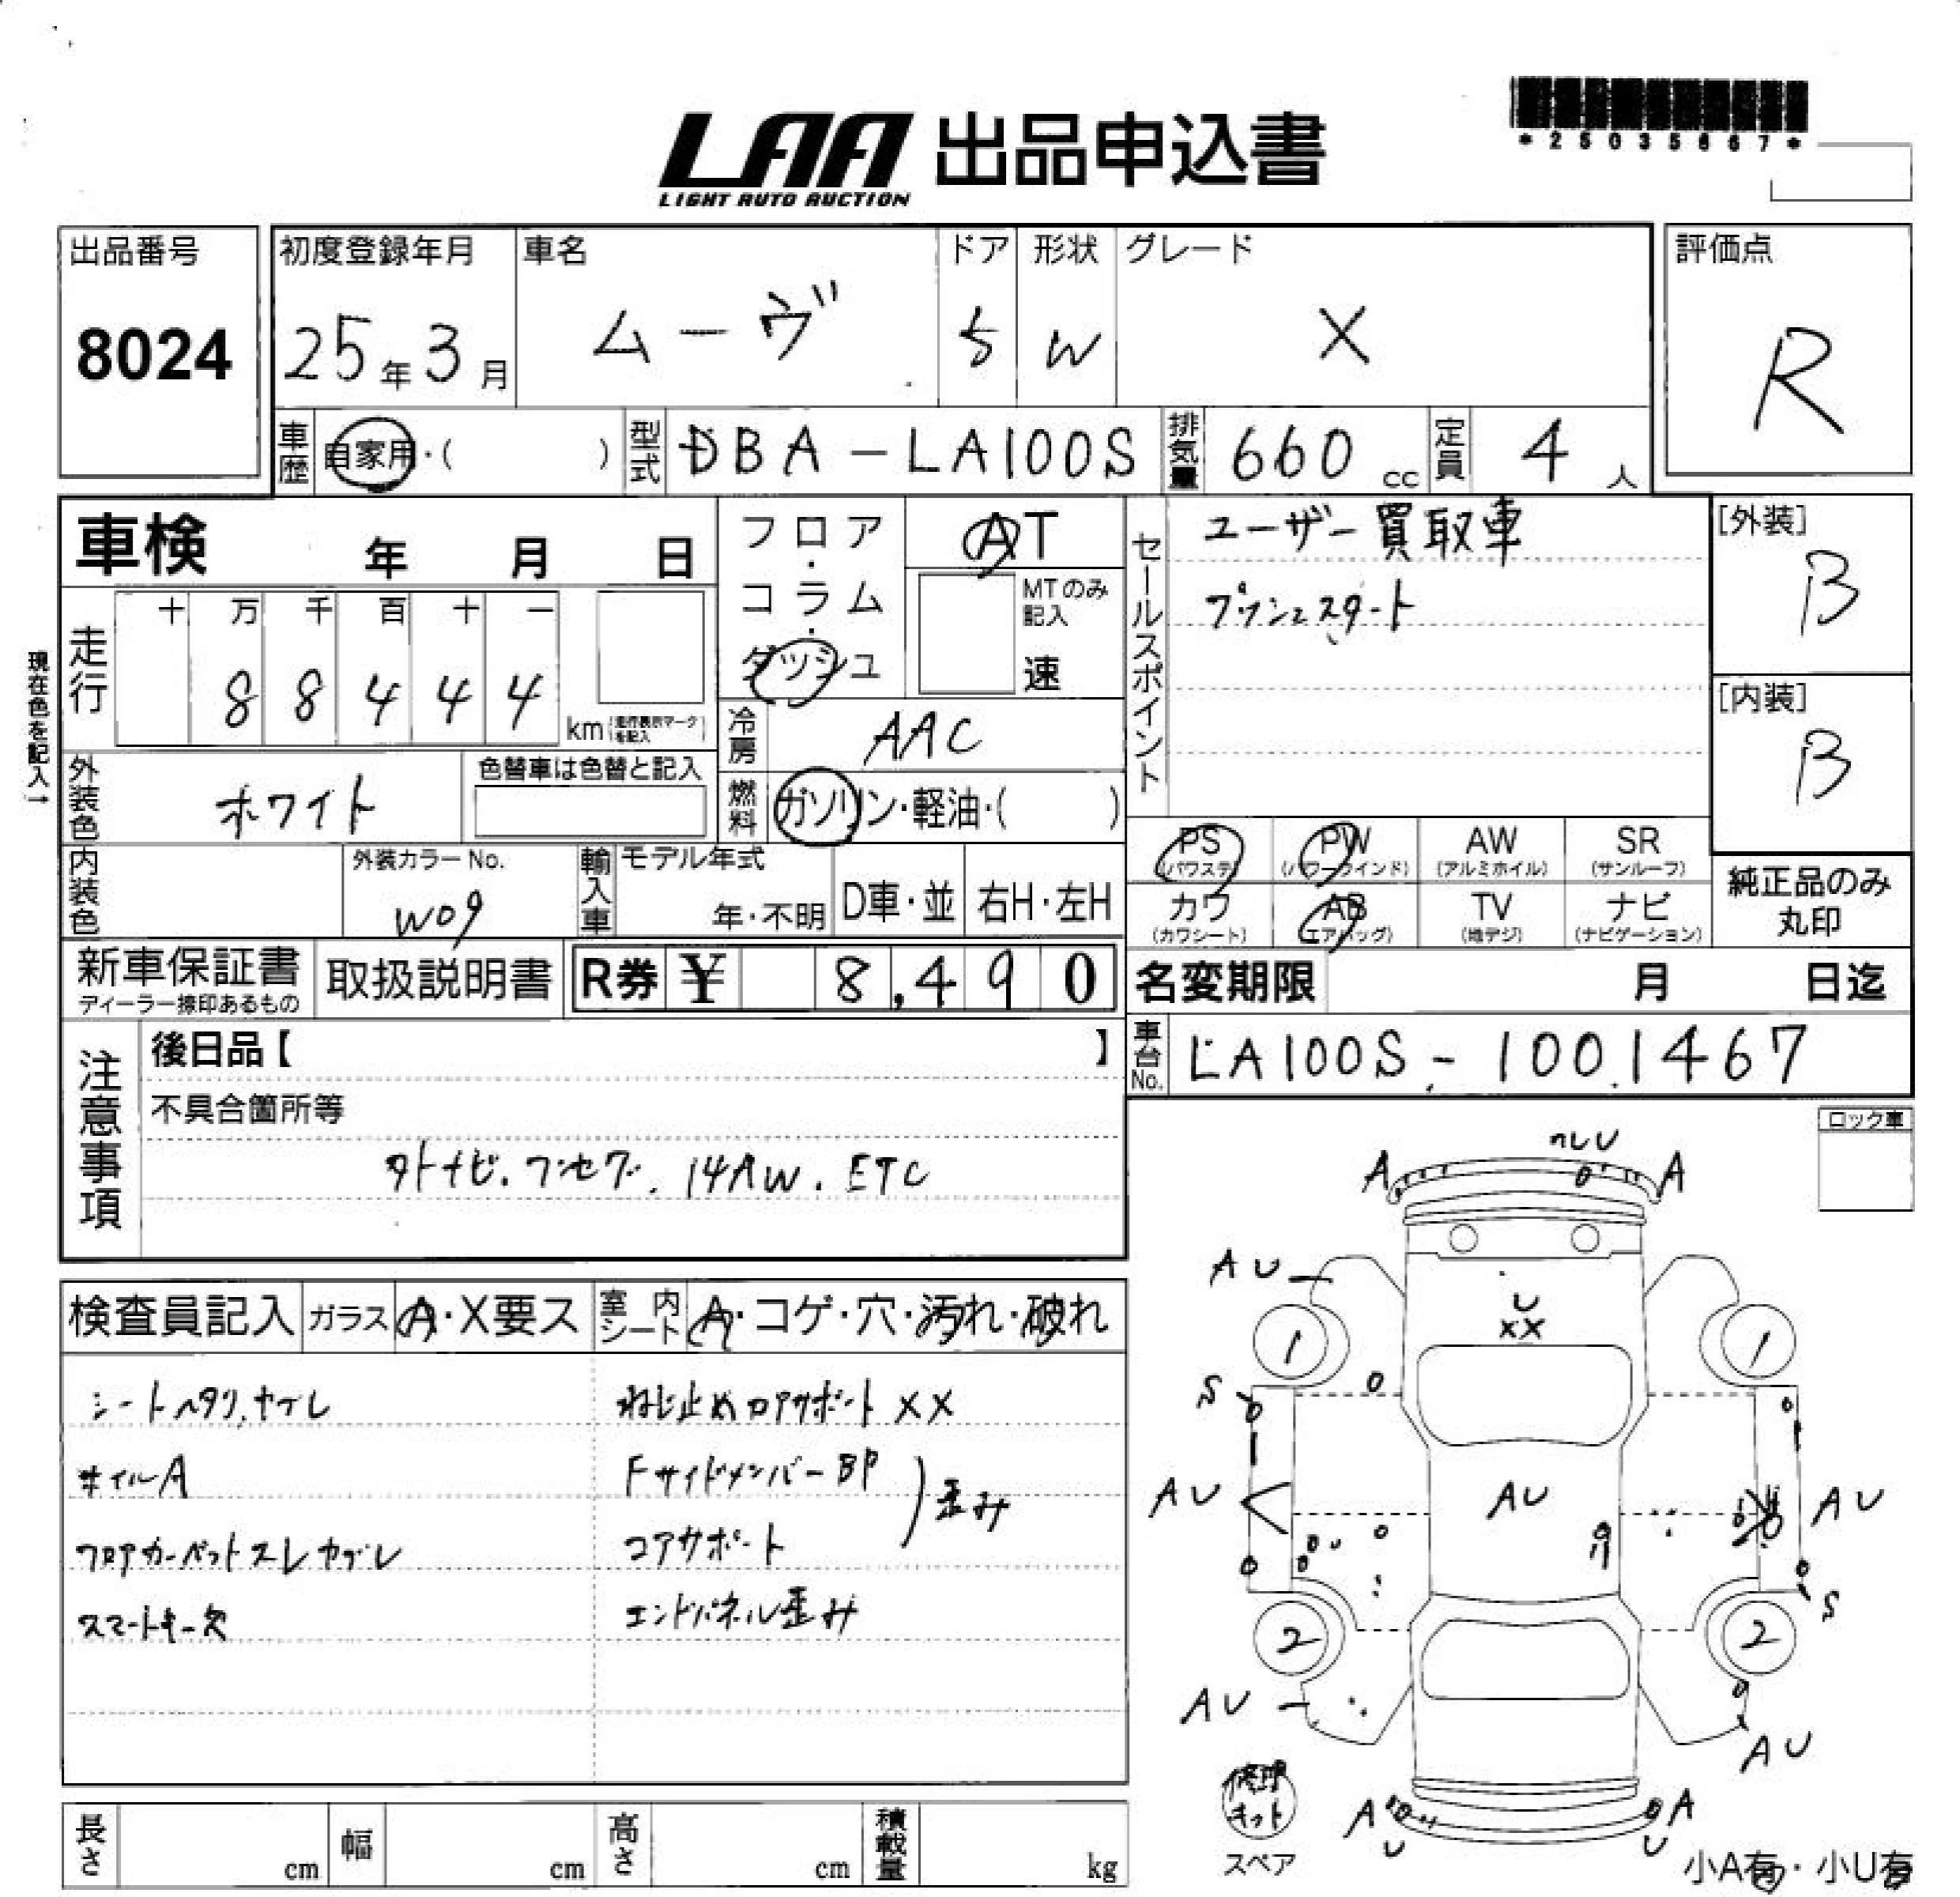 *25035667*
LAA 出品申込書
LIGHT AUTO AUCTION
出品番号
8024
初度登録年月
25年3月
車名
ムーヴ
ドア
5
形状
W
グレード
X
評価点
R
車歴
自家用・( )
型式
DBA-LA100S
排気量
660 cc
定員
4 人
車検 年 月 日
走行
十 万 千 百 十 一
8 8 4 4 4
km (走行表示マークを記入)
現在色を記入→
外装色
ホワイト
色替車は色替と記入
フロア・コラム・ダッシュ
AT
MTのみ記入
速
冷房
AAC
燃料
ガソリン・軽油・( )
セールスポイント
ユーザー買取車
プッシュスタート
[外装]
B
[内装]
B
内装色
外装カラーNo.
W09
輸入車
モデル年式
年・不明
D車・並
右H・左H
PS (パワステ)
PW (パワーウインド)
AW (アルミホイル)
SR (サンルーフ)
カワ (カワシート)
AB (エアバッグ)
TV (地デジ)
ナビ (ナビゲーション)
純正品のみ
丸印
新車保証書
ディーラー捺印あるもの
取扱説明書
R券 ¥ 8,490
名変期限 月 日迄
車台No.
LA100S-1001467
注意事項
後日品【 】
不具合箇所等
外ナビ.ワンセグ.14AW.ETC
ロック車
検査員記入
ガラス
A・X要ス
室内シート
A・コゲ・穴・汚れ・破れ
シートヘタリ.ヤブレ
ホイルA
フロアカーペットスレヤブレ
スマートキー欠
ねじ止めコアサポートXX
FサイドメンバーBP
コアサポート
歪み
エンドパネル歪み
ワレU
A A
AU
U
XX
1 1
S
AU AU AU
S
2 2
AU
AU
修理キット
スペア
A U
A U
小A有・小U有
長さ cm
幅 cm
高さ cm
積載量 kg